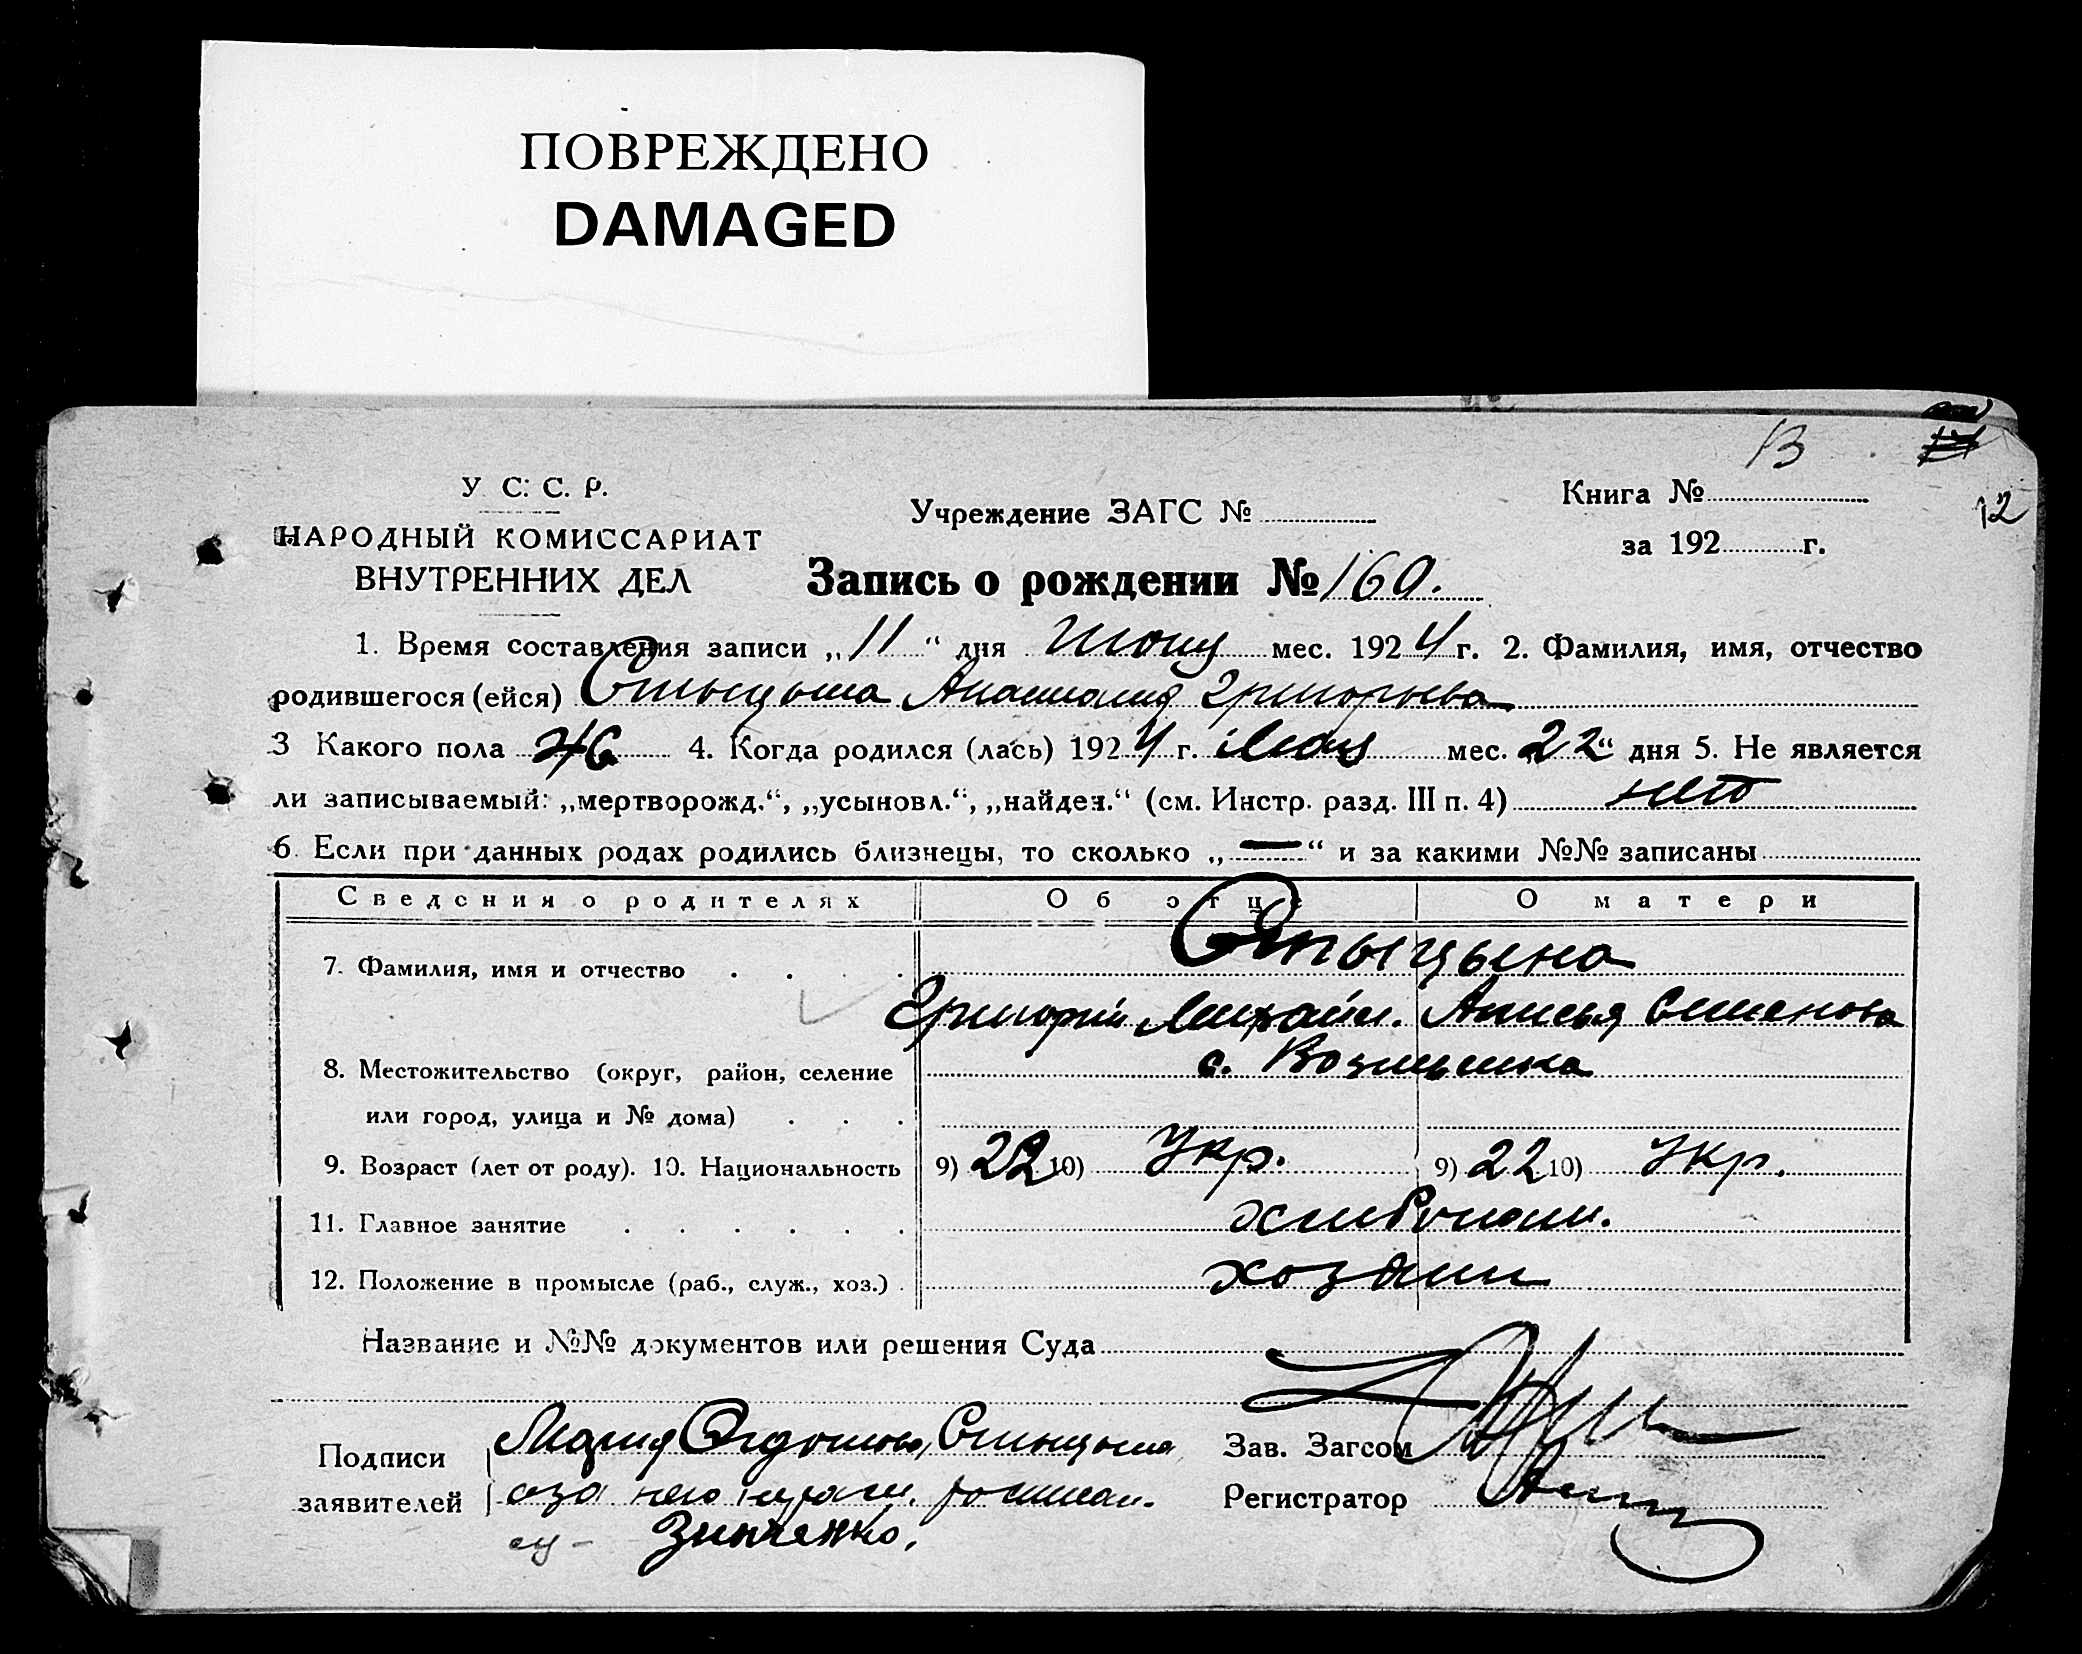 ПОВРЕЖДЕНО
DAMAGED
13
12
У. С. С. Р.
НАРОДНЫЙ КОМИССАРИАТ
ВНУТРЕННИХ ДЕЛ
Учреждение ЗАГС №
Книга №
за 192 г.
Запись о рождении № 160.
1. Время составления записи „11“ дня Июня мес. 1924 г. 2. Фамилия, имя, отчество
родившегося (ейся) Стыцына Анастасия Григорьева
3 Какого пола ж 4. Когда родился (лась) 1924 г. Мая мес. „22“ дня 5. Не является
ли записываемый: „мертворожд.“, „усыновл.“, „найден.“ (см. Инстр. разд. III п. 4) нет
6. Если при данных родах родились близнецы, то сколько „—“ и за какими №№ записаны
Сведения о родителях Об отце О матери
7. Фамилия, имя и отчество Стыцына
Григорий Михайл. Анисья Семенова
8. Местожительство (округ, район, селение с.
или город, улица и № дома)
9. Возраст (лет от роду). 10. Национальность 9) 22 10) Укр. 9) 22 10) Укр.
11. Главное занятие хлебопаш.
12. Положение в промысле (раб., служ., хоз.) хозяин
Название и №№ документов или решения Суда
Подписи Мария Стыцына Зав. Загсом
заявителей Регистратор
Зинченко.